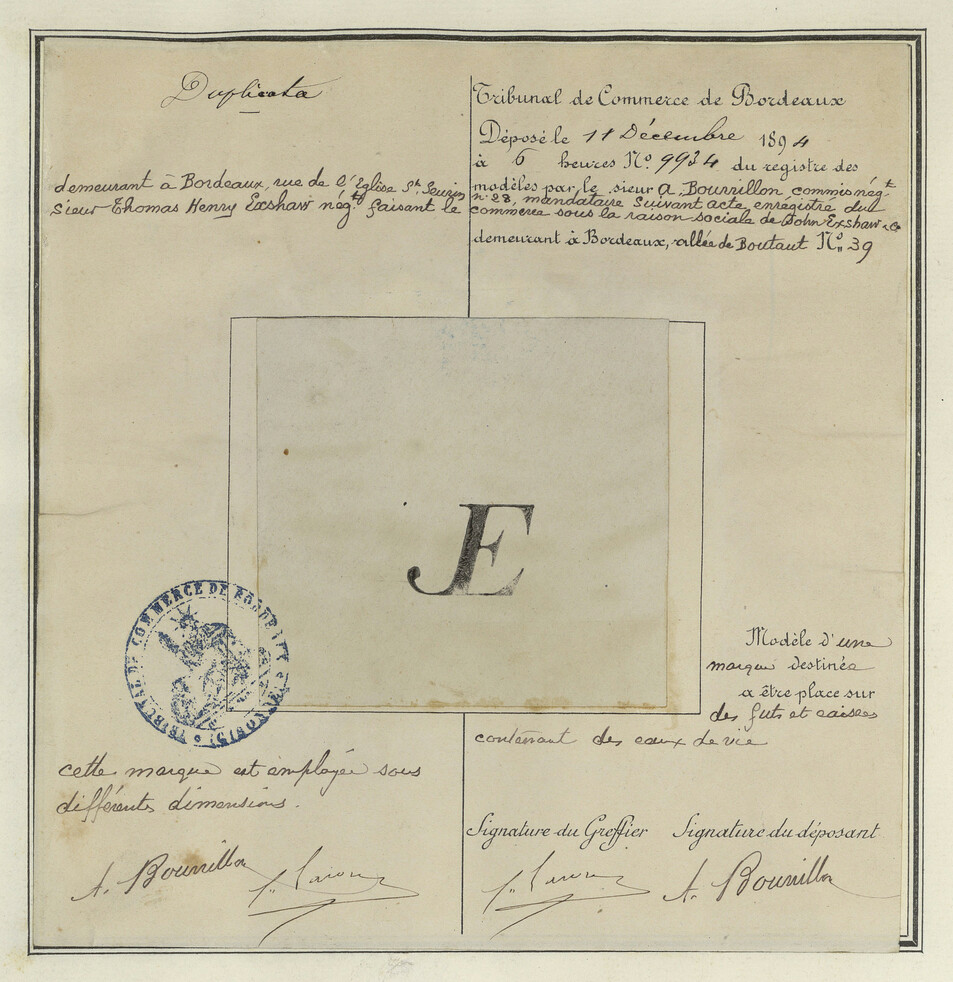 Duplicata
Tribunal de Commerce de Bordeaux
Déposé le 11 Décembre 1894
à 6 heures No. 9934 du registre des
modèles par le sieur A. Bourrillon commis négt
demeurant à Bordeaux, rue de l'Eglise St. Seurin n. 28, mandataire suivant acte enrégistré du
Sieur Thomas Henry Exshaw négt faisant le commerce sous la raison sociale de John Exshaw & Co
demeurant à Bordeaux, allée de Boutaut No. 39
JE
TRIBUNAL DE COMMERCE DE BORDEAUX
Modèle d'une
marque destinée
a être place sur
des futs et caisses
contenant des eaux de vie
cette marque est employée sous
différents dimensions.
Signature du Greffier Signature du déposant
A. Bourrillon
A. Bourrillon